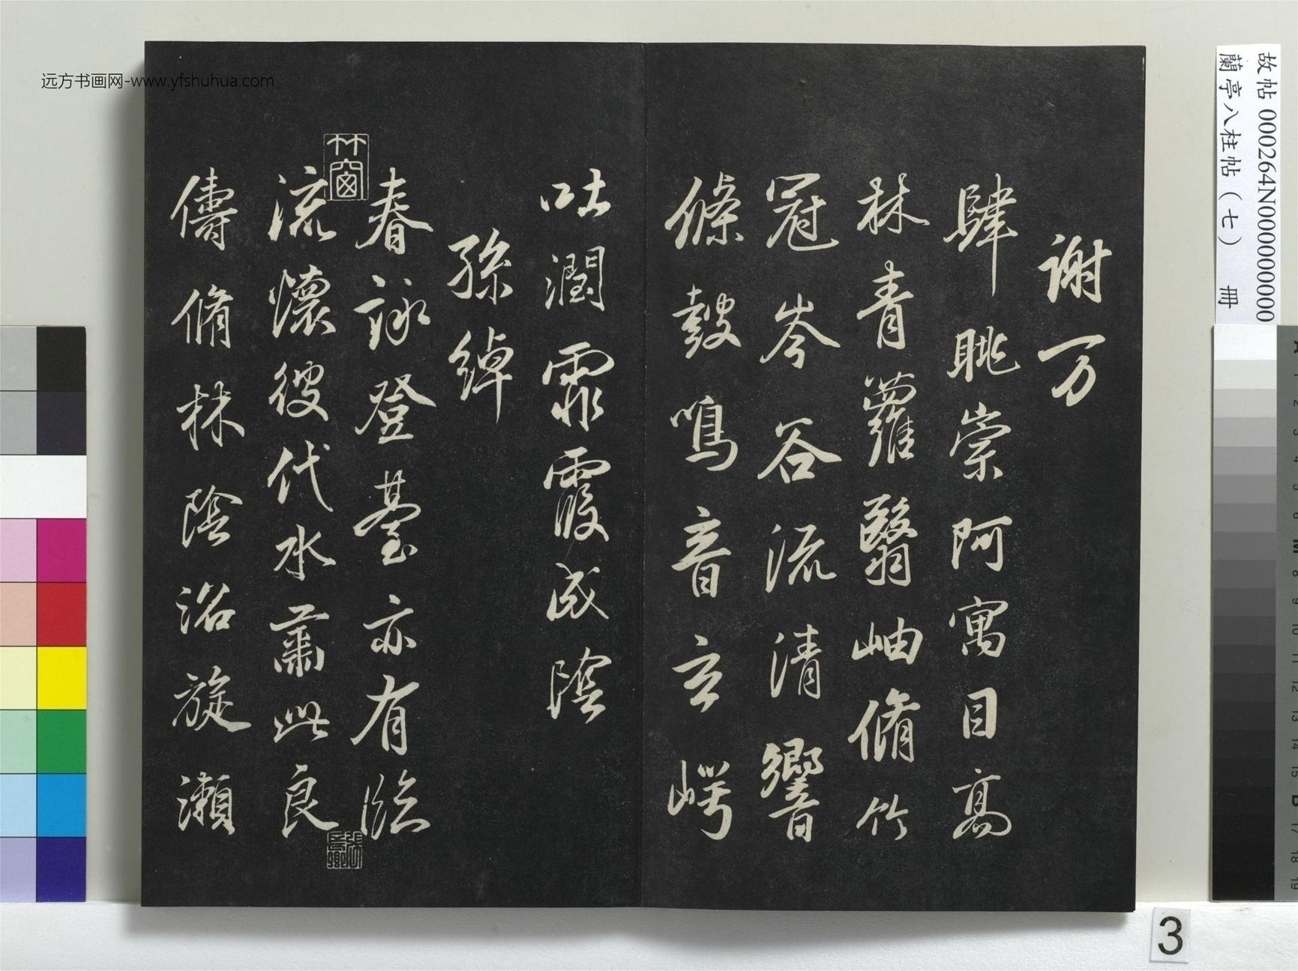 远方书画网-www.yfshuhua.com
故帖 000264N000000000
蘭亭八柱帖（七） 冊
謝万
肆眺崇阿寓目高
林青蘿翳岫脩竹
冠岑谷流清響
條鼓鳴音玄崿
吐潤霏霞成陰
孫綽
春詠登臺亦有臨
流懷彼代水肅此良
儔脩林陰沼旋瀨
竹窗
3